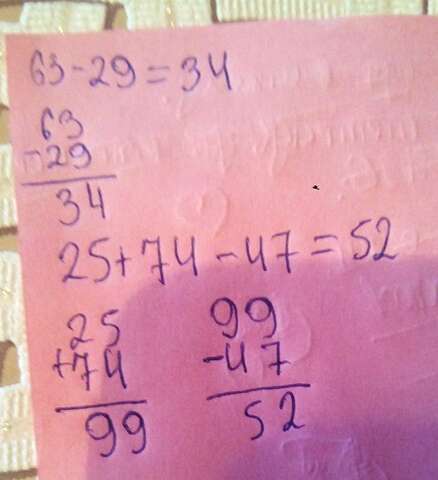 63-29=34
63
-29
34
25+74-47=52
25 99
+74 -47
99 52